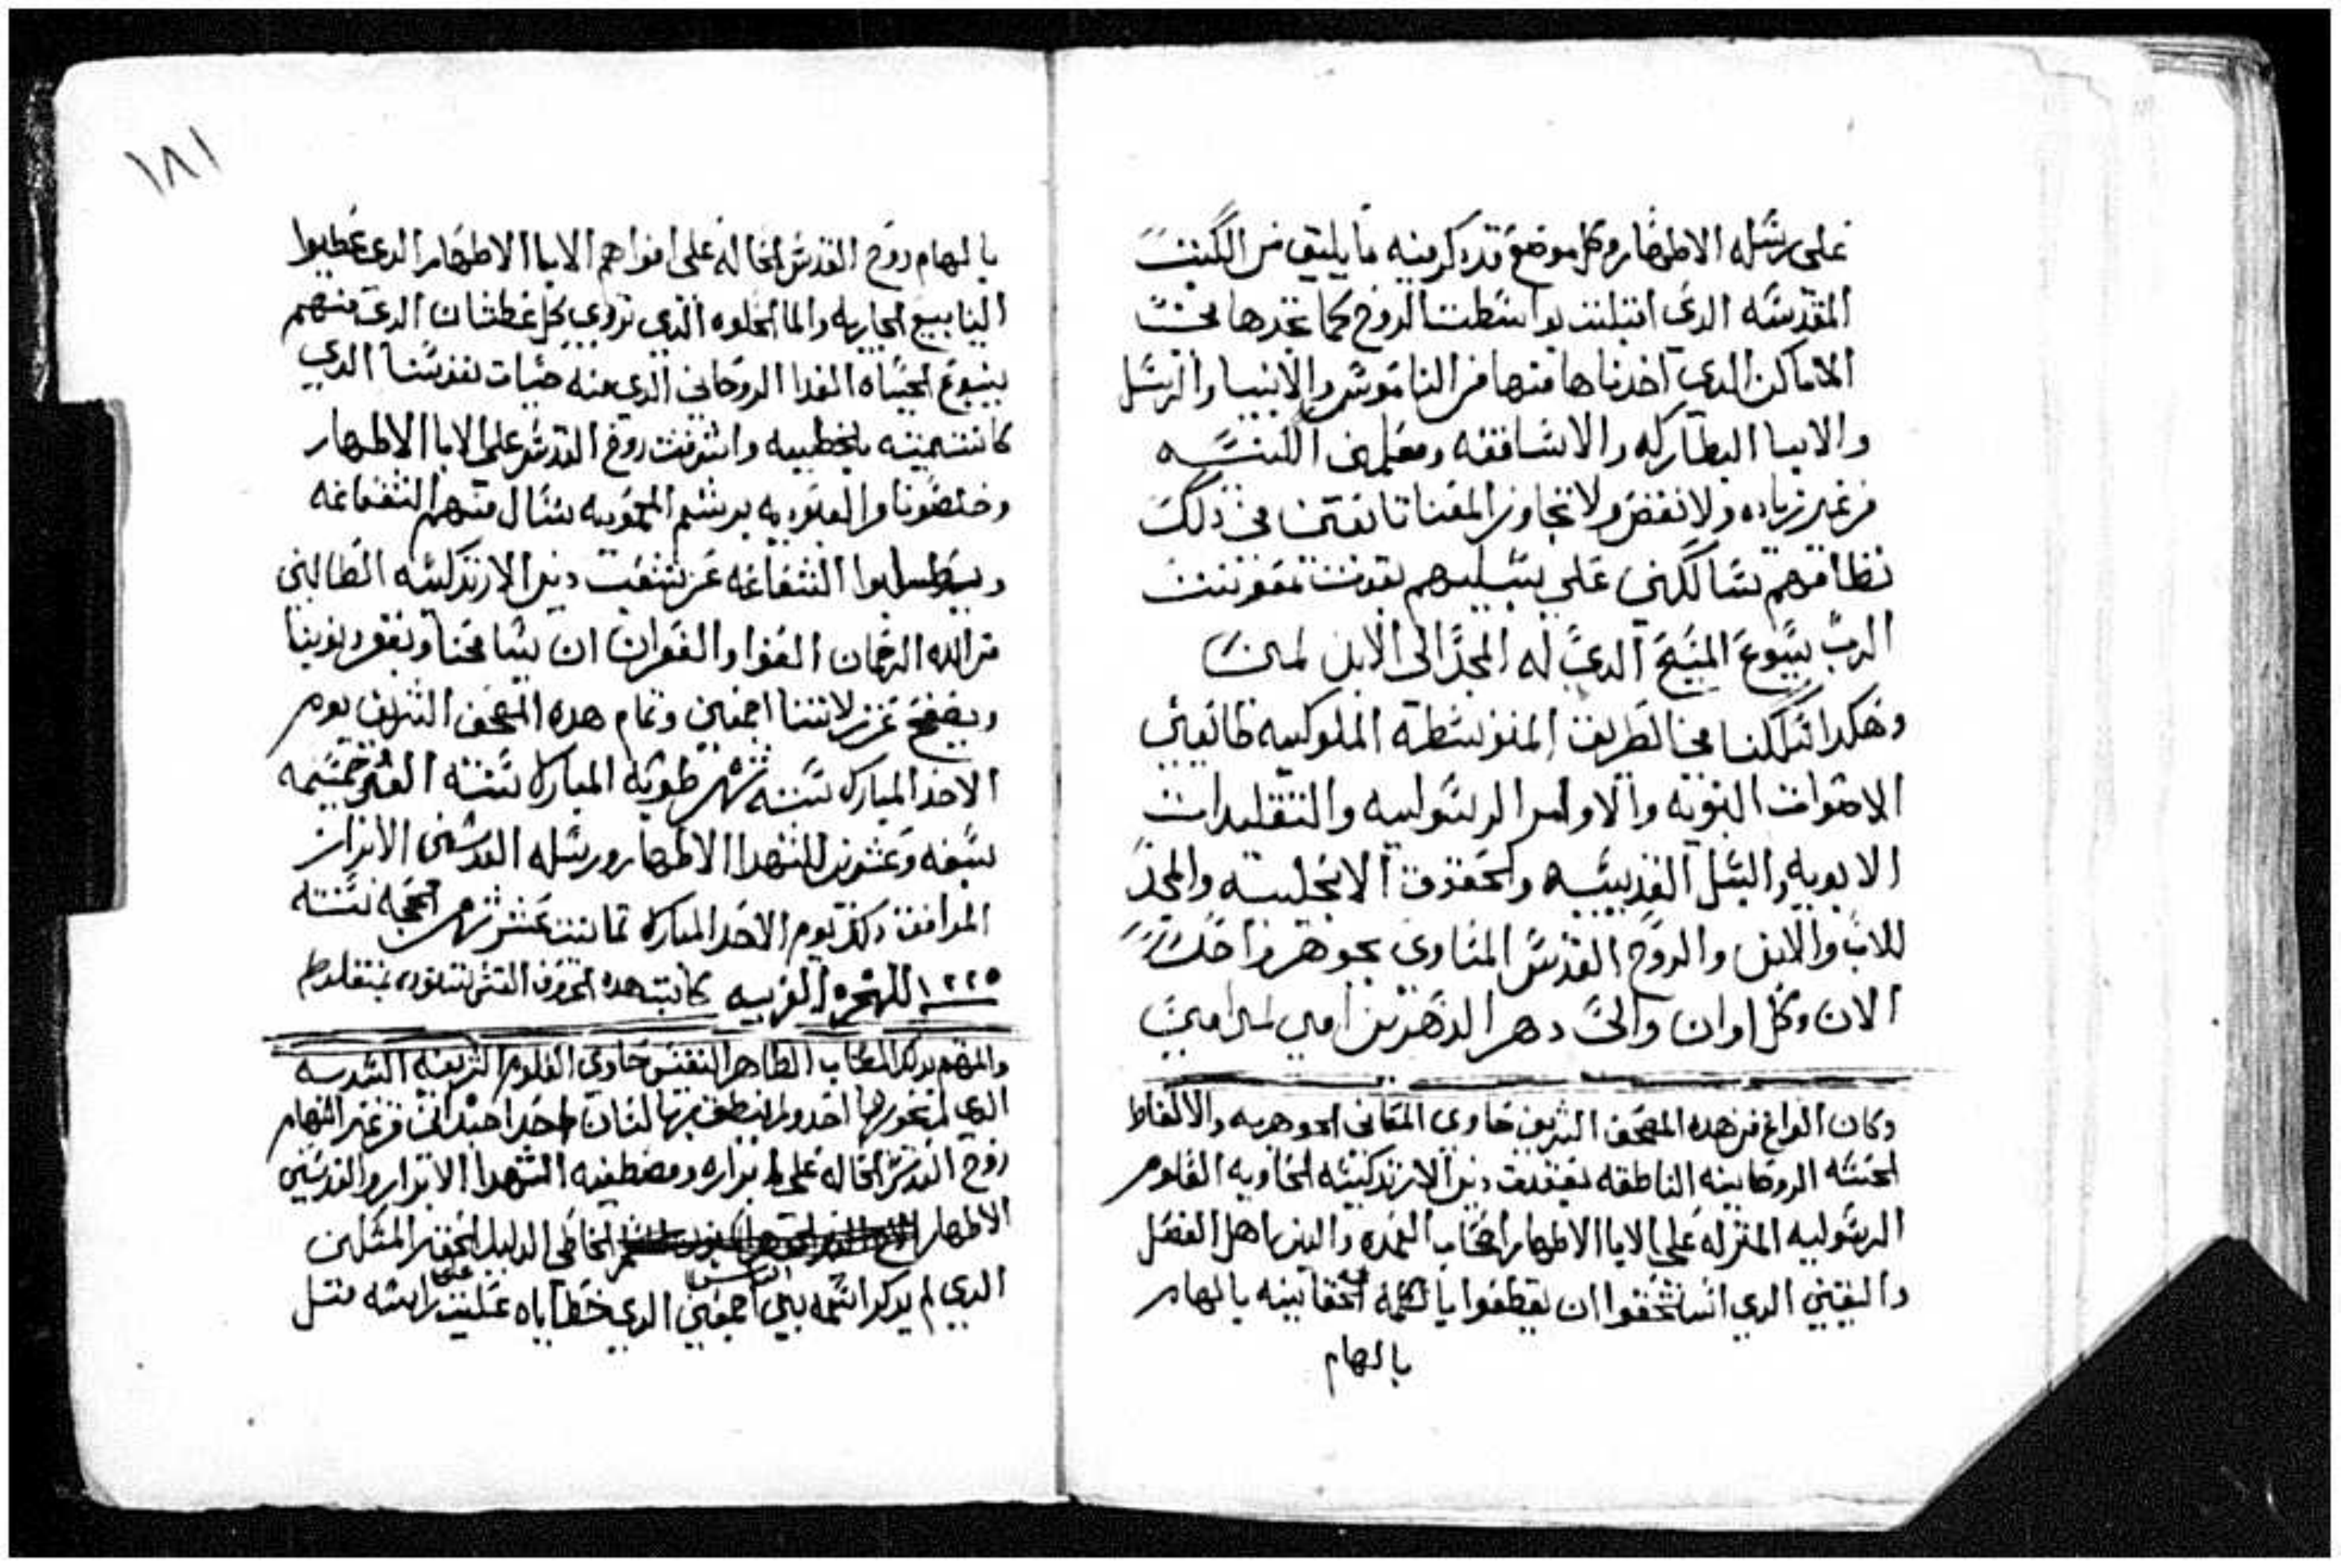 على رسله الاطهار وكل موضع قد ذكر فيه ما يليق من الكتب
المقدسه الدي اتبلت بواسطت الروح كما تجدها في
الاماكن الدي اخدناها منها من الناموس والانبيا والرسل
والابيا البطاركه والاساقفه ومعلمين الكنيسه
من غير زياده ولا نقص ولا تجاوز المعنا تابعين في ذلك
نظامهم سالكين على سبيلهم بقوت معونت
الرب يسوع المسيح الدي له المجد الى الابد امين
وهكدا سلكنا في الطريق المتوسطه الملوكيه طايعين
الاصوات النبويه والاوامر الرسوليه والتقليدات
الابويه والسبل القديسيه والحقوق الانجليه والمجد
للاب والابن والروح القدس المساوي بجوهر واحد
الان وكل اوان والى دهر الداهرين امين امين
وكان الفراغ من هده المصحف الشريف حاوي المعاني الجوهريه والالفاظ
الحسنه الروحانيه الناطقه دين الارتدكسيه الحاويه العلوم
الرسوليه المنزله على الابا الاطهار اصحاب العمده والدين اهل الفضل
واليقين الدي استحقوا ان يعطفوا بالكلمه الحقانيه بالهام
بالهام
١٨١
بالهام روح القدس الحاله على افواهم الابا الاطهار الدي عطيوا
الينابيع الجاريه والما الحلوه الدي تروي كل عطشان الدي منهم
ينبوع الحياه الغدا الروحاني الدي منه حيات نفوسنا الدي
واشرقت روح القدس على الابا الاطهار
وخلصونا من العبوديه برشم المعموديه نسال منهم الشفاعه
الشفاعه عن شعب دين الارتدكسيه الطالبين
من الله الرحمان العفوا والغفران ان يسامحنا ويغفر دنوبنا
ويصفح عن زلاتنا اجمعين وتمام هده المصحف الشريف يوم
الاحد المبارك ستة شهر طوبه المبارك سنة الف وخمسمه
سبعه وعشرين للشهدا الاطهار ورسله القديسين الابرار
الموافق دلك يوم الاحد المبارك تمانيت عشر شهر الحجه سنة
١٢٢٥ للهجره العربيه كاتبه هده الحروف القس بمنفلوط
والمهتم بدلك الكتاب الطاهر النفيس حاوي العلوم الشريعه
الدي لم احد ولم ينطق بها لسان من غير الهام
روح القدس الحاله على ابراره ومصطفيه الشهدا الابرار والقديسين
الاطهار الخاطي الدليل الحقير المسكين
الدي لم يدكر اسمه بين الناس اجمعين الدي خطاياه عليت على راسه متل